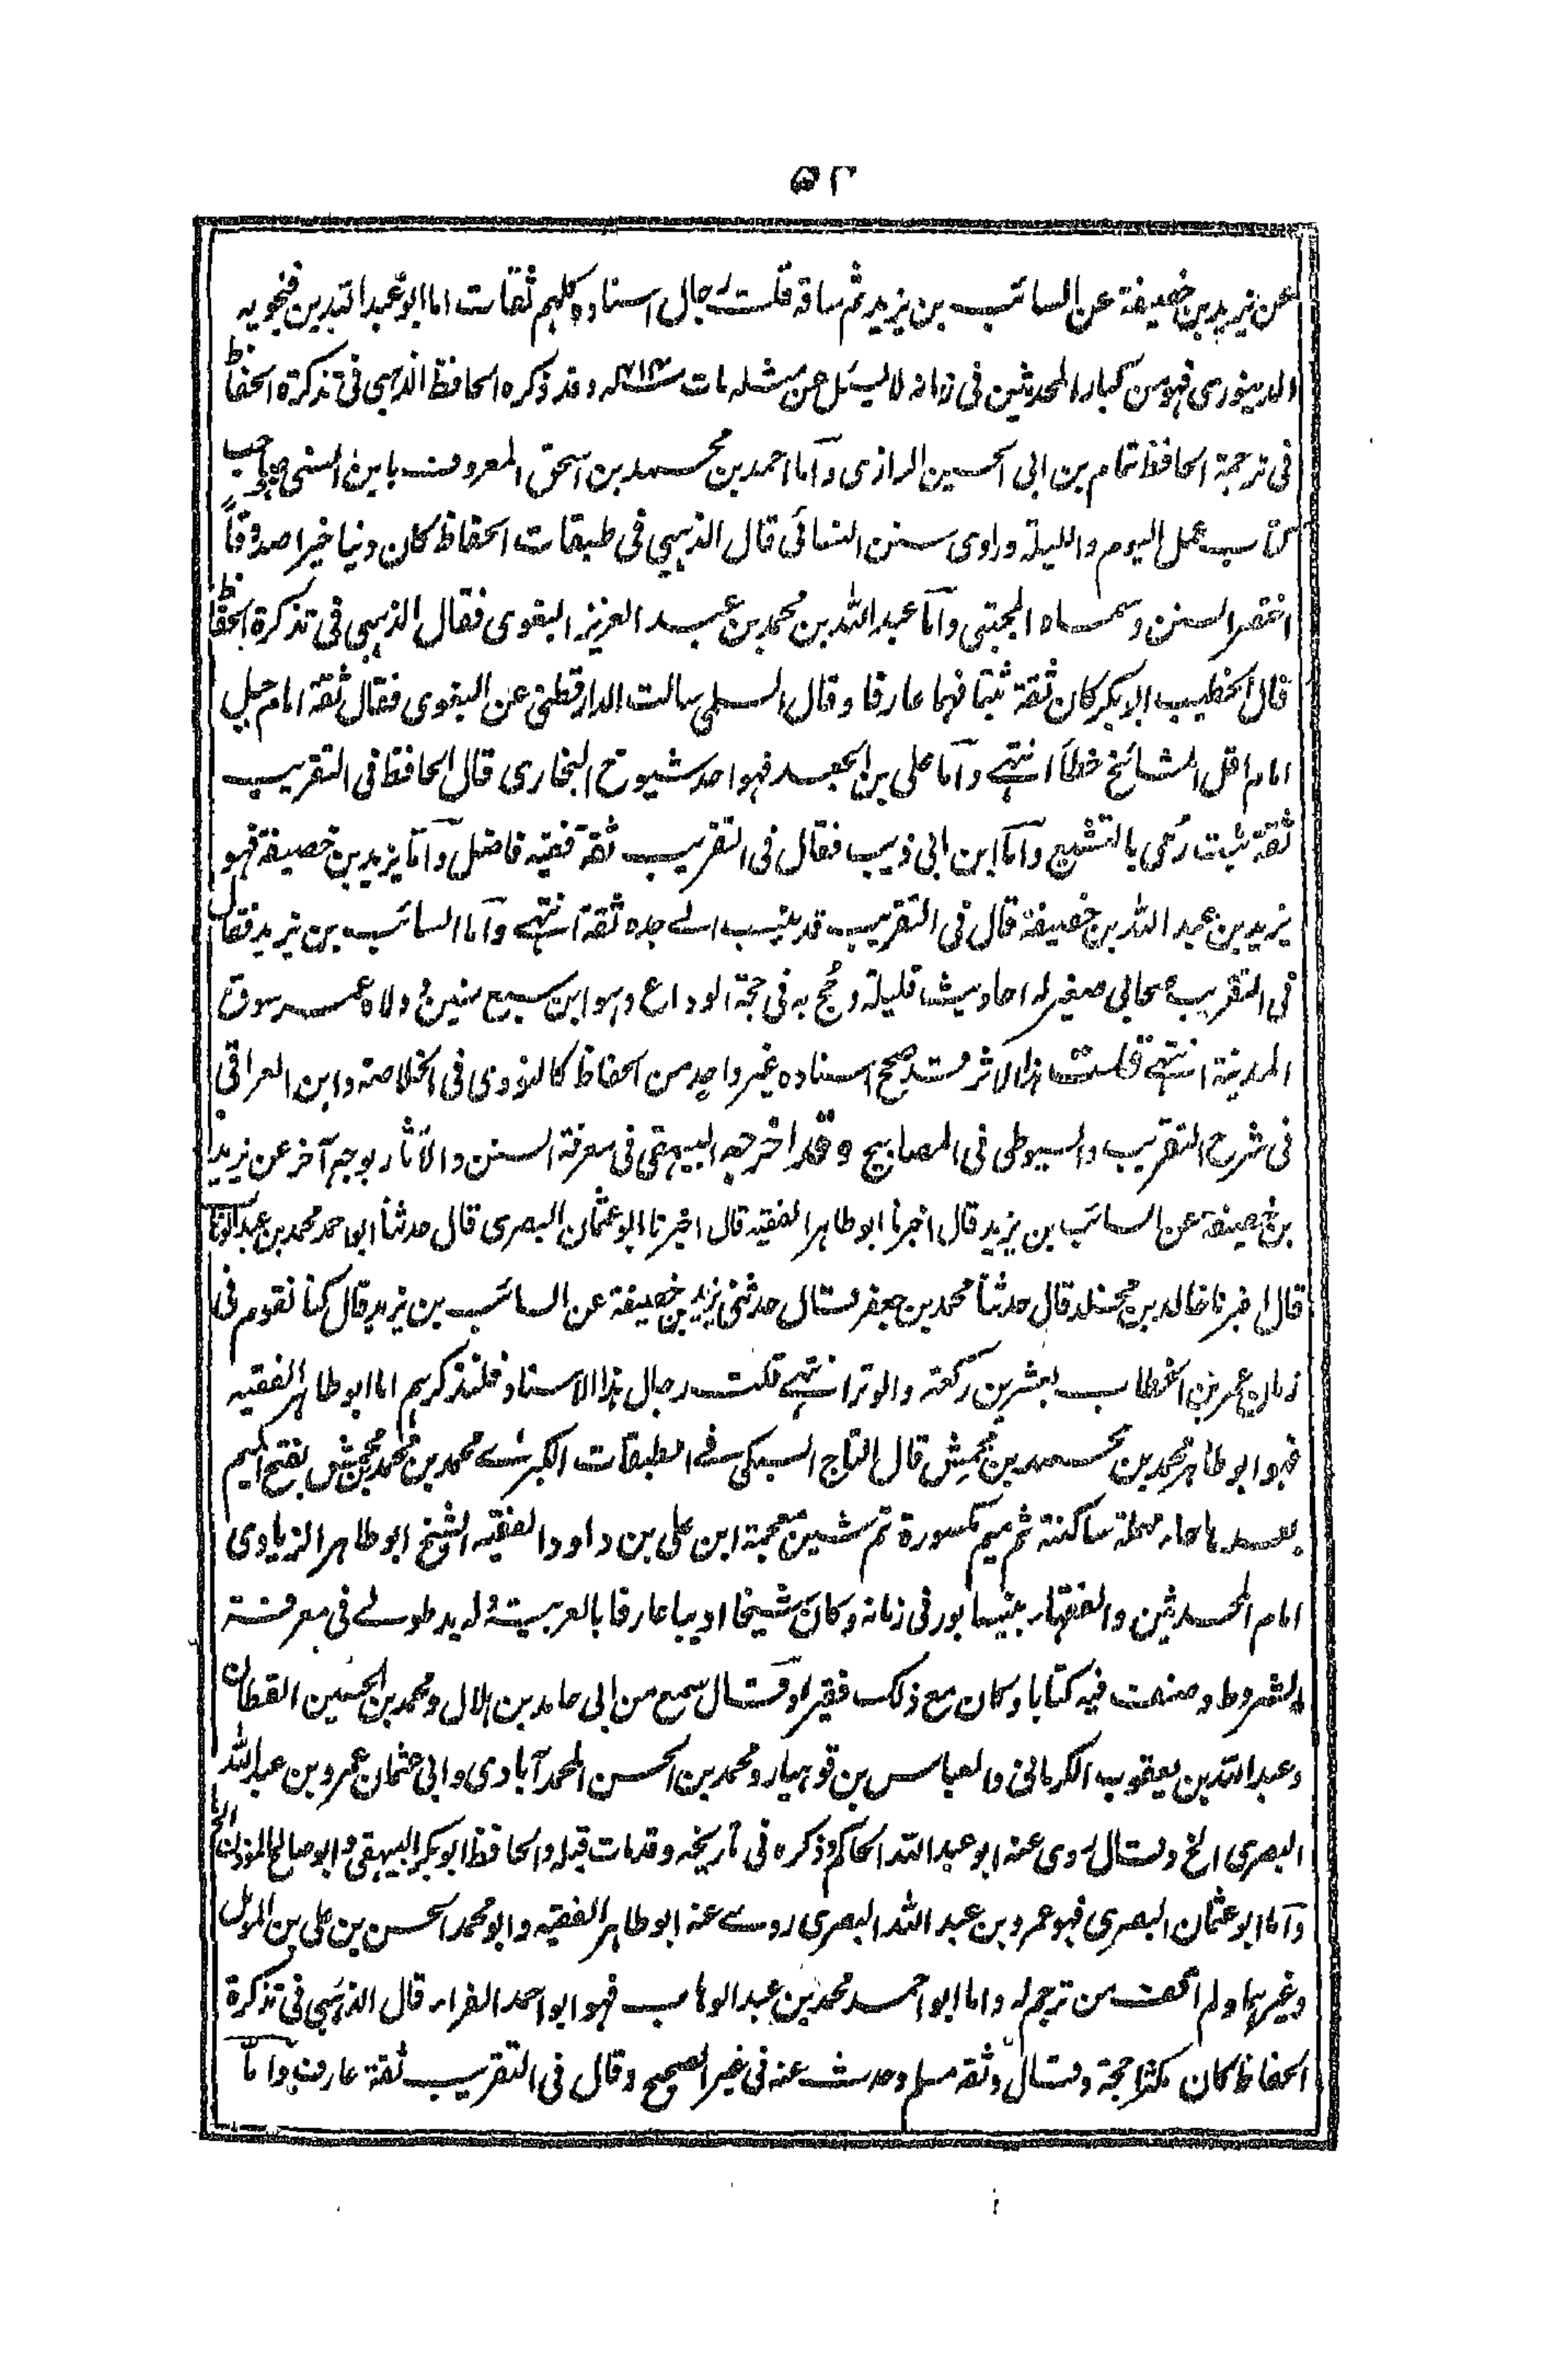 ٥٢
عن يزيد بن خصيفة عن السائب بن يزيد ثم ساقه قلت رجال اسناده كلهم ثقات اما ابو عبد الله بن فنجويه
الدينوري فهو من كبار المحدثين في زمانه لا يسئل عن مثله مات سنة ٤١٤ وقد ذكره الحافظ الذهبي في تذكرة الحفاظ
في ترجمة الحافظ تمام بن ابي الحسين الرازي واما احمد بن محمد بن اسحق المعروف بابن السني صاحب
كتاب عمل اليوم والليلة وراوى سنن النسائي قال الذهبي في طبقات الحفاظ كان دينا خيرا صدوقاً
اختصر السنن وسماه المجتبى واما عبد الله بن محمد بن عبد العزيز البغوى فقال الذهبي في تذكرة الحفاظ
قال الخطيب ابو بكر كان ثقة ثبتا فهما عارفا وقال السلمي سالت الدارقطني عن البغوى فقال ثقة امام جبل
امام اقل المشائخ خطأ انتهى واما علي بن الجعد فهو احد شيوخ البخارى قال الحافظ في التقريب
ثقة ثبت رُمى بالتشيع واما ابن ابي ذيب فقال في التقريب ثقة فقيه فاضل واما يزيد بن خصيفة فهو
يزيد بن عبد الله بن خصيفة قال في التقريب قد ينسب الى جده ثقة انتهى واما السائب بن يزيد فقال
في التقريب صحابي صغير له احاديث قليلة وحُج به في حجة الوداع وهو ابن سبع سنين وولاه عمر سوق
المدينة انتهى قلت هذا الاثر قد صحح اسناده غير واحد من الحفاظ كالنووى في الخلاصة وابن العراقي
في شرح التقريب والسيوطى في المصابيح وقد اخرجه البيهقي في معرفة السنن والاثار بوجه آخر عن يزيد
بن خصيفة عن السائب بن يزيد قال اخبرنا ابو طاهر الفقيه قال اخبرنا ابو عثمان البصرى قال حدثنا ابو احمد محمد بن عبد الوهاب
قال اخبرنا خالد بن مخلد قال حدثنا محمد بن جعفر قال حدثني يزيد بن خصيفة عن السائب بن يزيد قال كنا نقوم في
زمان عمر بن الخطاب بعشرين ركعة والوتر انتهى قلت رجال هذا الاسناد فلنذكرهم اما ابو طاهر الفقيه
فهو ابو طاهر محمد بن محمد بن محمش قال التاج السبكى في الطبقات الكبرى محمد بن محمد بن محمش بفتح الميم
بعدها حاء مهملة ساكنة ثم ميم مكسورة ثم شين معجمة ابن علي بن داود الفقيه الشيخ ابو طاهر الزيادى
امام المحدثين والفقهاء بنيسابور في زمانه وكان شيخا اديبا عارفا بالعربية وله يد طولى في معرفة
الشروط وصنف فيه كتابا وكان مع ذلك فقيرا وقال سمع من ابي حامد بن بلال ومحمد بن الحسين القطان
وعبد الله بن يعقوب الكرمانى والعباس بن قوهيار ومحمد بن الحسن المحمد آبادى وابي عثمان عمرو بن عبد الله
البصرى الخ وقال روى عنه ابو عبد الله الحاكم وذكره في تاريخه وقد مات قبله والحافظ ابو بكر البيهقي وابو صالح المؤذن الخ
واما ابو عثمان البصرى فهو عمرو بن عبد الله البصرى روى عنه ابو طاهر الفقيه وابو محمد الحسن بن علي بن المومل
وغيرهما ولم اقف من ترجم له واما ابو احمد محمد بن عبد الوهاب فهو ابو احمد الفراء قال الذهبي في تذكرة
الحفاظ كان مكثرا حجة وقال وثقه مسلم وحدث عنه في غير الصحيح وقال في التقريب ثقة عارف واما